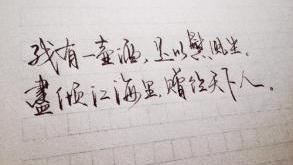 我有一壶酒,足以慰風尘,
盡傾江海里,赠饮天下人。